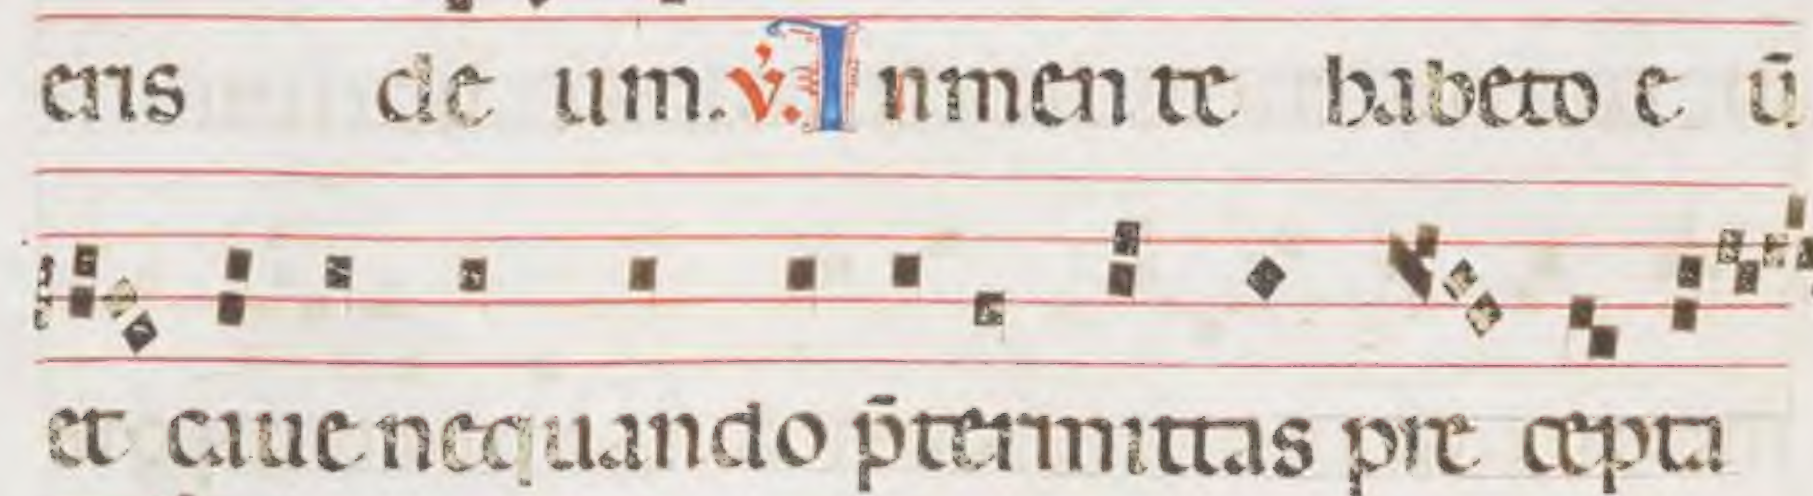 eris de um. v̇. Inmen te habeto e ū
et caue nequando p̄termittas pre cepta